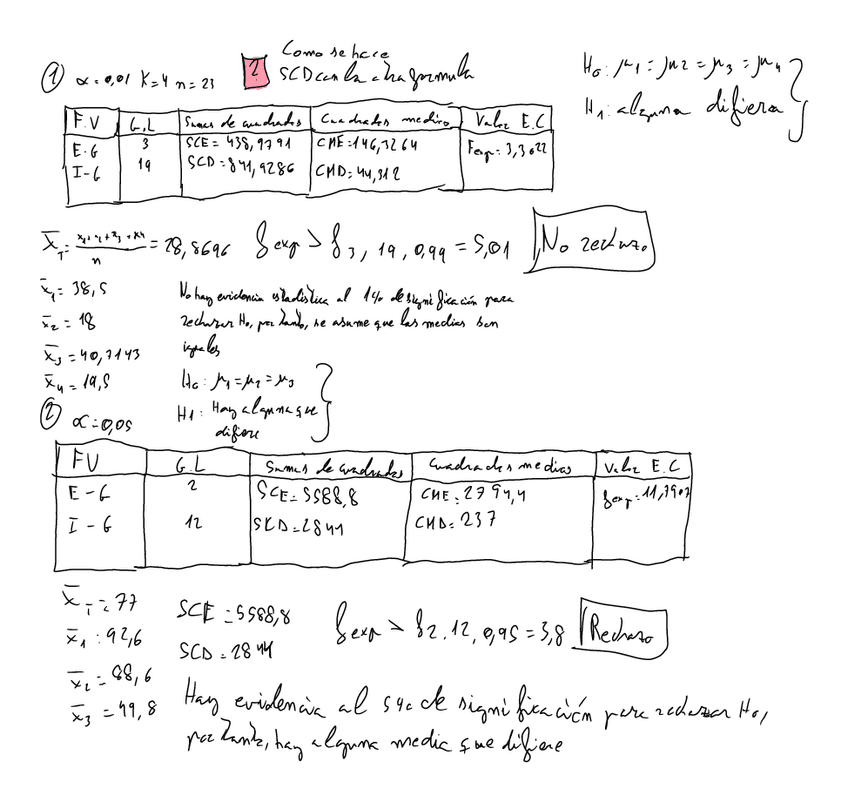 ① α=0,01 K=4 n=23
? Como se hace
SCD con la otra formula
H0: μ1=μ2=μ3=μ4
H1: alguna difiera
F.V G.L Sumas de cuadrados Cuadrados medios Valor E.C
E-G 3 SCE=438,9791 CME=146,3264 Fexp=3,3022
I-G 19 SCD=841,9286 CMD=44,312
x̄T= x1+x2+x3+x4 / n = 28,8696 fexp > f3, 19, 0,99 = 5,01 No rechazo
x̄1= 38,5
x̄2= 18
x̄3=40,7143
x̄4=19,5
No hay evidencia estadistica al 1% de significación para
rechazar H0, por tanto, se asume que las medias son
iguales
H0: μ1=μ2=μ3
H1: Hay alguna que
difiere
② α=0,05
FV G.L Sumas de cuadrados Cuadrados medios Valor E.C
E-G 2 SCE=5588,8 CME=2794,4 fexp=11,7907
I-G 12 SCD=2844 CMD=237
x̄T=77
x̄1=92,6
x̄2=88,6
x̄3=49,8
SCE=5588,8
SCD=2844
fexp > f2,12,0,95=3,8 Rechazo
Hay evidencia al 5% de significación para rechazar H0,
por tanto, hay alguna media que difiere